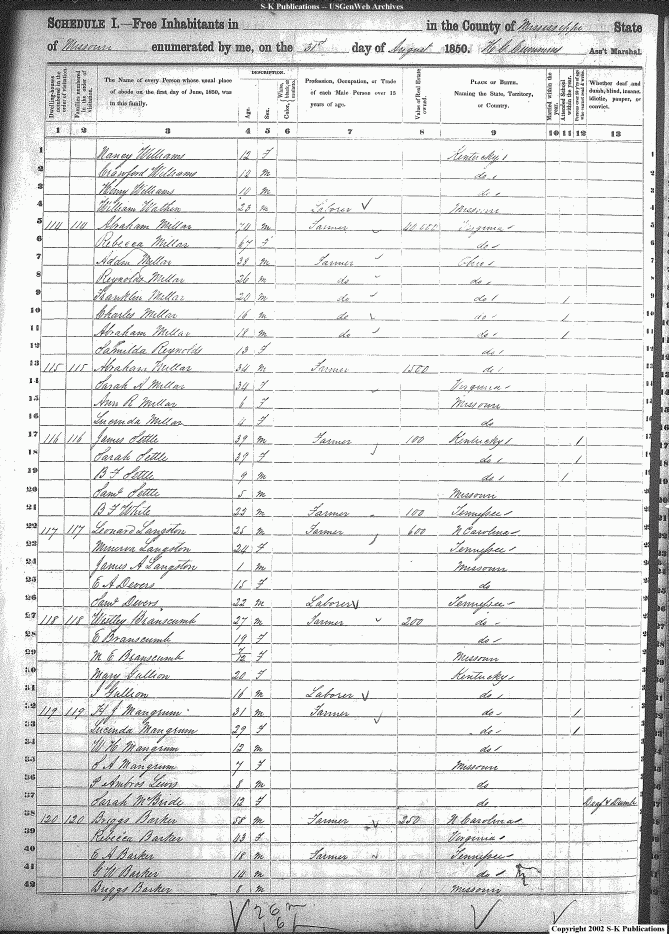 S-K Publications -- USGenWeb Archives
SCHEDULE I.—Free Inhabitants in in the County of Mississippi State
of Missouri enumerated by me, on the 31st day of August 1850. Ass't Marshal.
Dwelling-houses numbered in the order of visitation. Families numbered in the order of visitation. The Name of every Person whose usual place of abode on the first day of June, 1850, was in this family. DESCRIPTION. Age. Sex. Color, White, black, or mulatto. Profession, Occupation, or Trade of each Male Person over 15 years of age. Value of Real Estate owned. PLACE OF BIRTH. Naming the State, Territory, or Country. Married within the year. Attended School within the year. Persons over 20 y'rs of age who cannot read & write. Whether deaf and dumb, blind, insane, idiotic, pauper, or convict.
1 2 3 4 5 6 7 8 9 10 11 12 13
1 Nancy Williams 12 F Kentucky 1
2 Crawford Williams 10 m do 2
3 Henry Williams 10 m do 3
4 William 23 m Laborer Missouri 4
5 114 114 Abraham Millar 70 m Farmer Virginia 5
6 Rebecca Millar 67 F do 6
7 Millar 38 m Farmer Ohio 7
8 Reynolds Millar 26 m do do 8
9 Franklin Millar 20 m do do 1 9
10 Charles Millar 16 m do do 1 10
11 Abraham Millar 18 m do do 1 11
12 Reynolds 13 F do 12
13 115 115 Abraham Millar 34 m Farmer 1500 do 13
14 Sarah A Millar 34 F Virginia 14
15 Ann R Millar 6 F Missouri 15
16 Lucinda Millar 4 F do 16
17 116 116 James Settle 39 m Farmer 100 Kentucky 1 17
18 Sarah Settle 39 F do 1 18
19 B F Settle 9 m do 1 19
20 Saml Settle 5 m Missouri 20
21 B F White 23 m Farmer 100 Tennessee 21
22 117 117 Leonard Langston 25 m Farmer 600 N Carolina 22
23 Minerva Langston 24 F Tennessee 23
24 James A Langston 1 m Missouri 24
25 E A Devers 15 F do 25
26 Saml Devers 22 m Laborer Tennessee 26
27 118 118 Branscumb 27 m Farmer 200 do 27
28 E Branscumb 19 F do 28
29 M E Branscumb /12 F Missouri 29
30 Mary Gullson 20 F Kentucky 30
31 Gullson 16 m Laborer do 31
32 119 119 J Mangrum 31 m Farmer do 1 32
33 Lucinda Mangrum 29 F do 1 33
34 W H Mangrum 12 m do 34
35 A Mangrum 7 F Missouri 35
36 Ambros Lewis 8 m do 36
37 Sarah McBride 12 F do Deaf & Dumb 37
38 120 120 Briggs Barker 58 m Farmer 250 N Carolina 38
39 Rebecca Barker 43 F Virginia 39
40 E A Barker 18 m Farmer Tennessee 40
41 W Barker 14 m do 41
42 Briggs Barker 8 m Missouri 42
Copyright 2002 S-K Publications